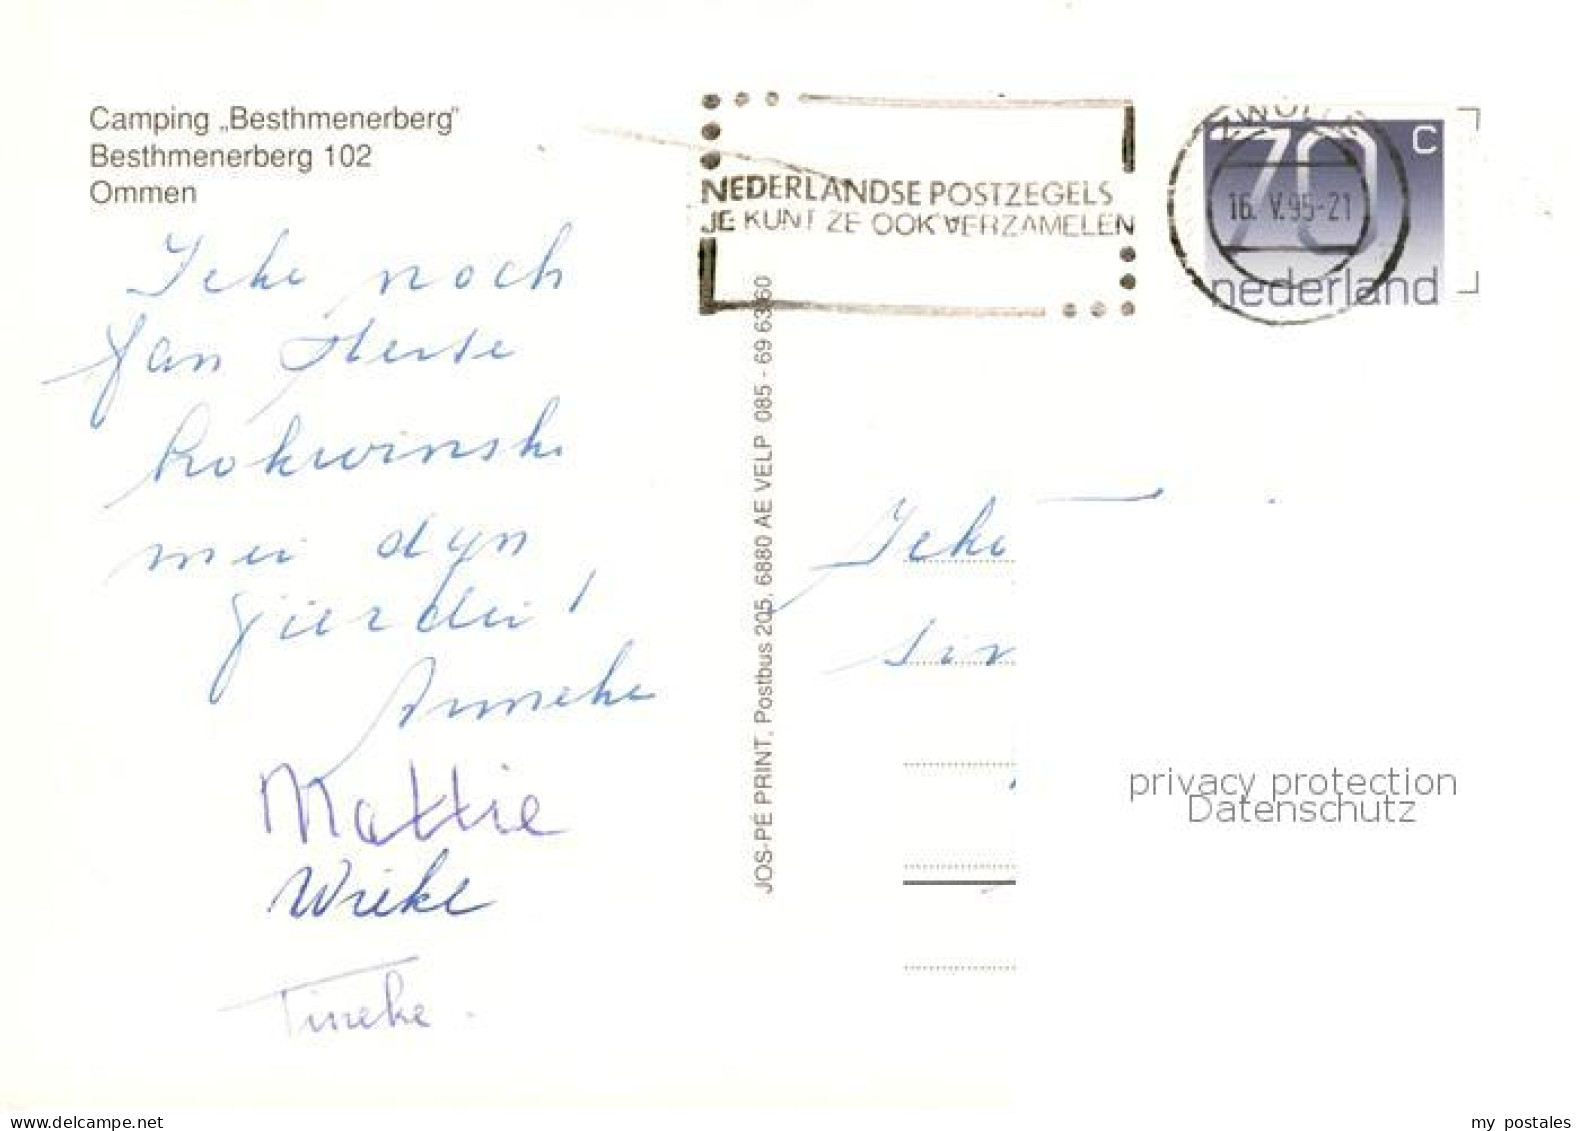 Camping „Besthmenerberg"
Besthmenerberg 102
Ommen
Jeke noch
fan herte
lokwinsk.
mei dyn
jierdei!
Anneke
Mattie
Wieke
Tineke.
NEDERLANDSE POSTZEGELS
JE KUNT ZE OOK VERZAMELEN
ZWOLLE
16. V.95-21
70 C
nederland
JOS-PÉ PRINT, Postbus 205, 6880 AE VELP 085 - 69 63 60
Jeke
privacy protection
Datenschutz
my postales